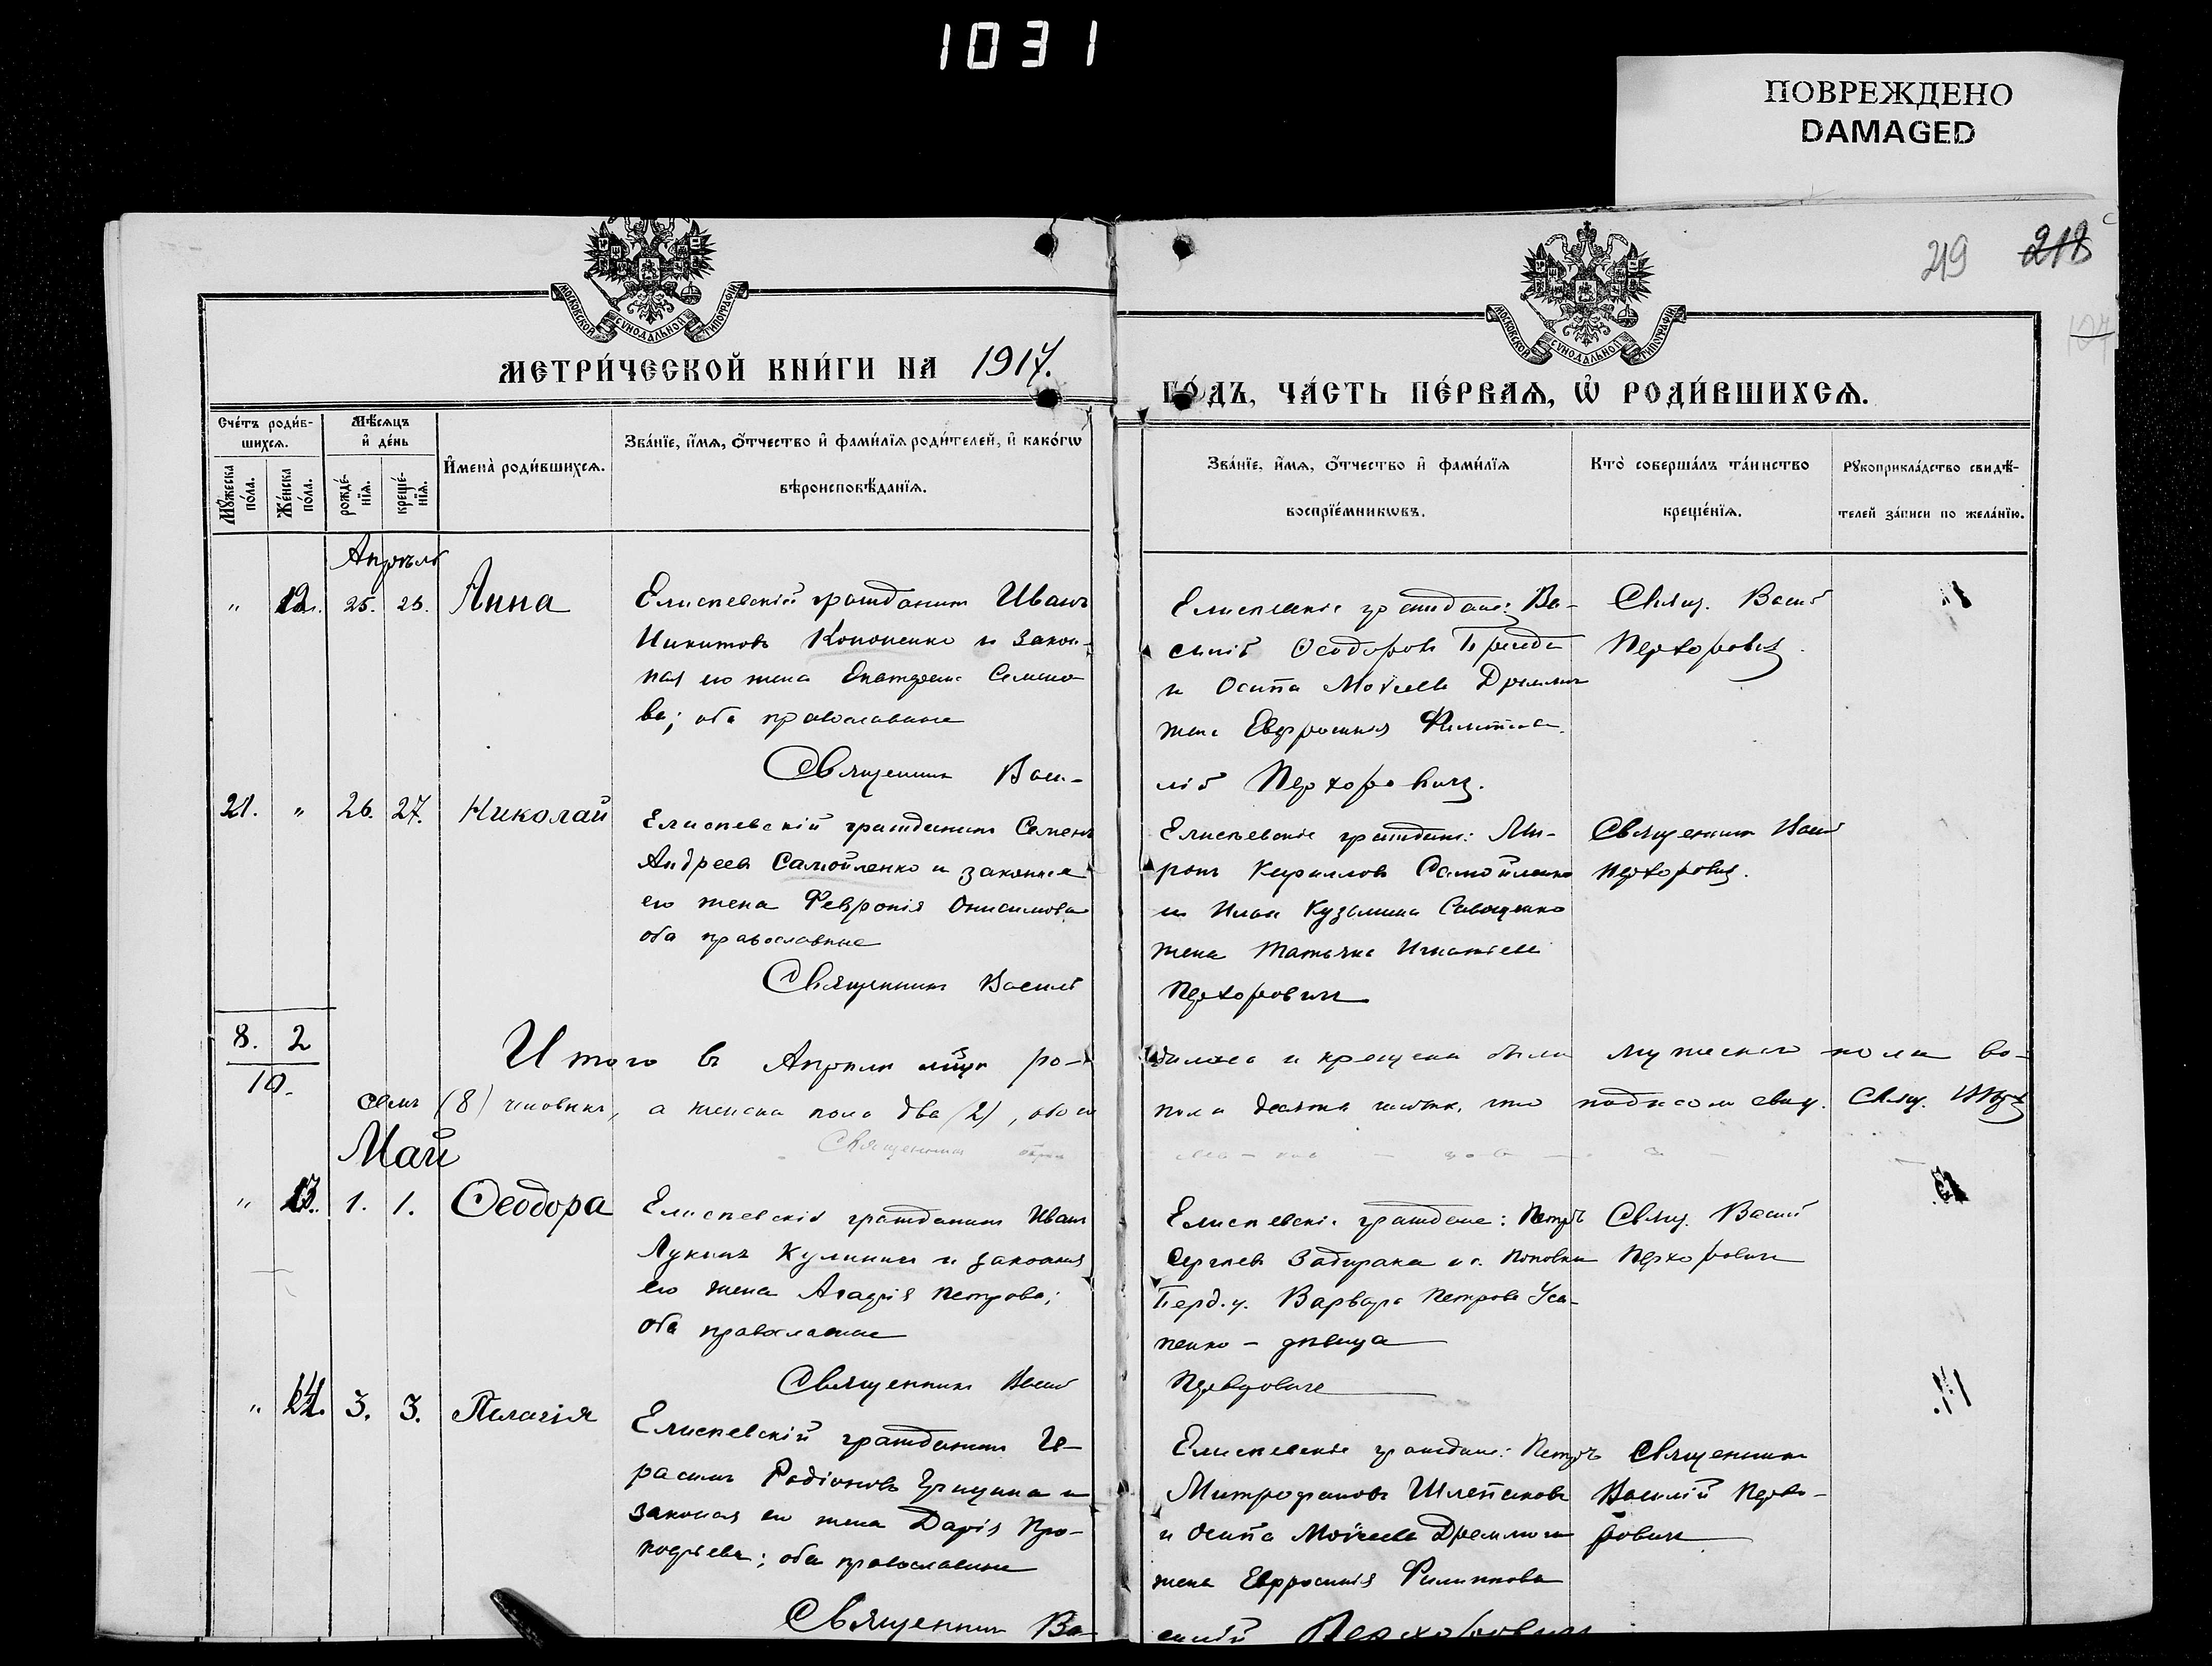 1031
ПОВРЕЖДЕНО
DAMAGED
219 218
МОСКОВСКОЙ СУНОДАЛЬНОЙ ТИПОГРАФІИ
МОСКОВСКОЙ СУНОДАЛЬНОЙ ТИПОГРАФІИ
МЕТРИ́ЧЕСКОЙ КНИ́ГИ НА 1917.
ГО́ДЪ, ЧА́СТЬ ПЕ́РВАЯ, Ѽ РОДИ́ВШИХСЯ.
Сче́тъ роди́в-
шихсѧ.
Мѹжеска по́ла.
Же́нска по́ла.
Мѣ́сѧцъ
и҆ де́нь
рожде́-
нїѧ.
креще́-
нїѧ.
И҆мена̀ роди́вшихсѧ.
Зва́нїе, и҆́мѧ, ѻ҆́тчество и҆ фами́лїѧ роди́телей, и҆ како́гѡ
вѣроисповѣ́данїѧ.
Зва́нїе, и҆́мѧ, ѻ҆́тчество и҆ фами́лїѧ
воспрїе́мникѡвъ.
Кто̀ соверша́лъ та́инство
креще́нїѧ.
Рꙋкоприкла́дство свидѣ́-
телей за́писи по жела́нїю.
Апрѣль
" 12. 25. 25. Анна
Елиспевскій гражданинъ Иванъ
Никитовъ Кононенко и закон-
ная его жена Екатерина Семено-
ва; оба православные
Священникъ Васи-
Елиспевскіе граждане: Ва-
силій Ѳеодоровъ
и Осипа Моѵсеева
жена Евфросинія Филиппова
лій Перхоровичъ.
Свящ. Василій
Перхоровичъ.
21. " 26. 27. Николай
Елиспевскій гражданинъ Семенъ
Андреевъ Самойленко и законная
его жена Февронія Онисимова
оба православные
Священникъ Василій
Елиспевскіе граждане: Ми-
ронъ Кирилловъ Самойленко
и Кузьмина
жена Татьяна Игнатіева
Перхоровичъ
Священникъ Василій
Перхоровичъ.
8. 2
10.
Итого въ Апрѣлѣ мѣсяцѣ ро-
дилось и крещены были мужеска пола во-
семь (8) человѣкъ, а женска пола два (2), обоего
пола десять что подписомъ свид. Свящ.
Священникъ
Май
" 13. 1. 1. Ѳеодора
Елиспевскій гражданинъ Иванъ
Лукинъ Кулининъ и законная
его жена Агафія Петрова;
оба православные
Священникъ Василій
Елиспевскіе граждане: Петръ
Сергіевъ Задирака и с. Поповки
Берд. у. Варвара Петрова Уса-
пенко – дѣвица
Перхоровичъ
Свящ. Василій
Перхоровичъ
" 14. 3. 3. Пелагія
Елиспевскій гражданинъ Ге-
расимъ Родіоновъ Грицина и
законная его жена Дарія Про-
кофіева; оба православные
Священникъ Ва-
Елиспевскіе граждане: Петръ
Митрофановъ Шлепаковъ
и Осипа Моѵсеева
жена Евфросинія Филиппова
силій Перхоровичъ
Священникъ
Василій Перхо-
ровичъ